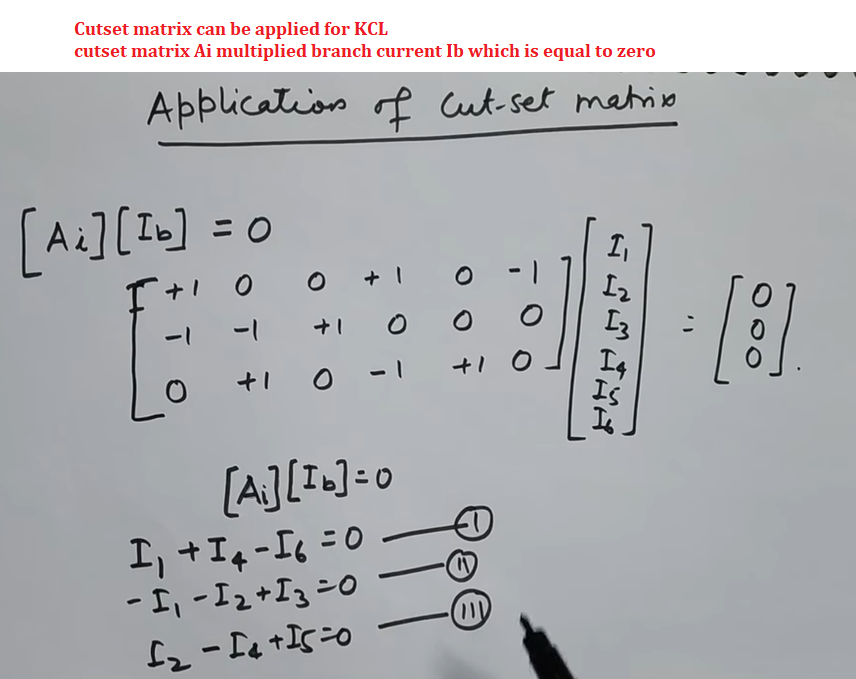 Cutset matrix can be applied for KCL
cutset matrix Ai multiplied branch current Ib which is equal to zero
Application of Cut-set matrix
[Ai][Ib] = 0
[+1 0 0 +1 0 -1
-1 -1 +1 0 0 0
0 +1 0 -1 +1 0]
[I1
I2
I3
I4
I5
I6]
= [0
0
0].
[Ai][Ib]=0
I1 + I4 - I6 = 0 — I
- I1 - I2 + I3 = 0 — II
I2 - I4 + I5 = 0 — III